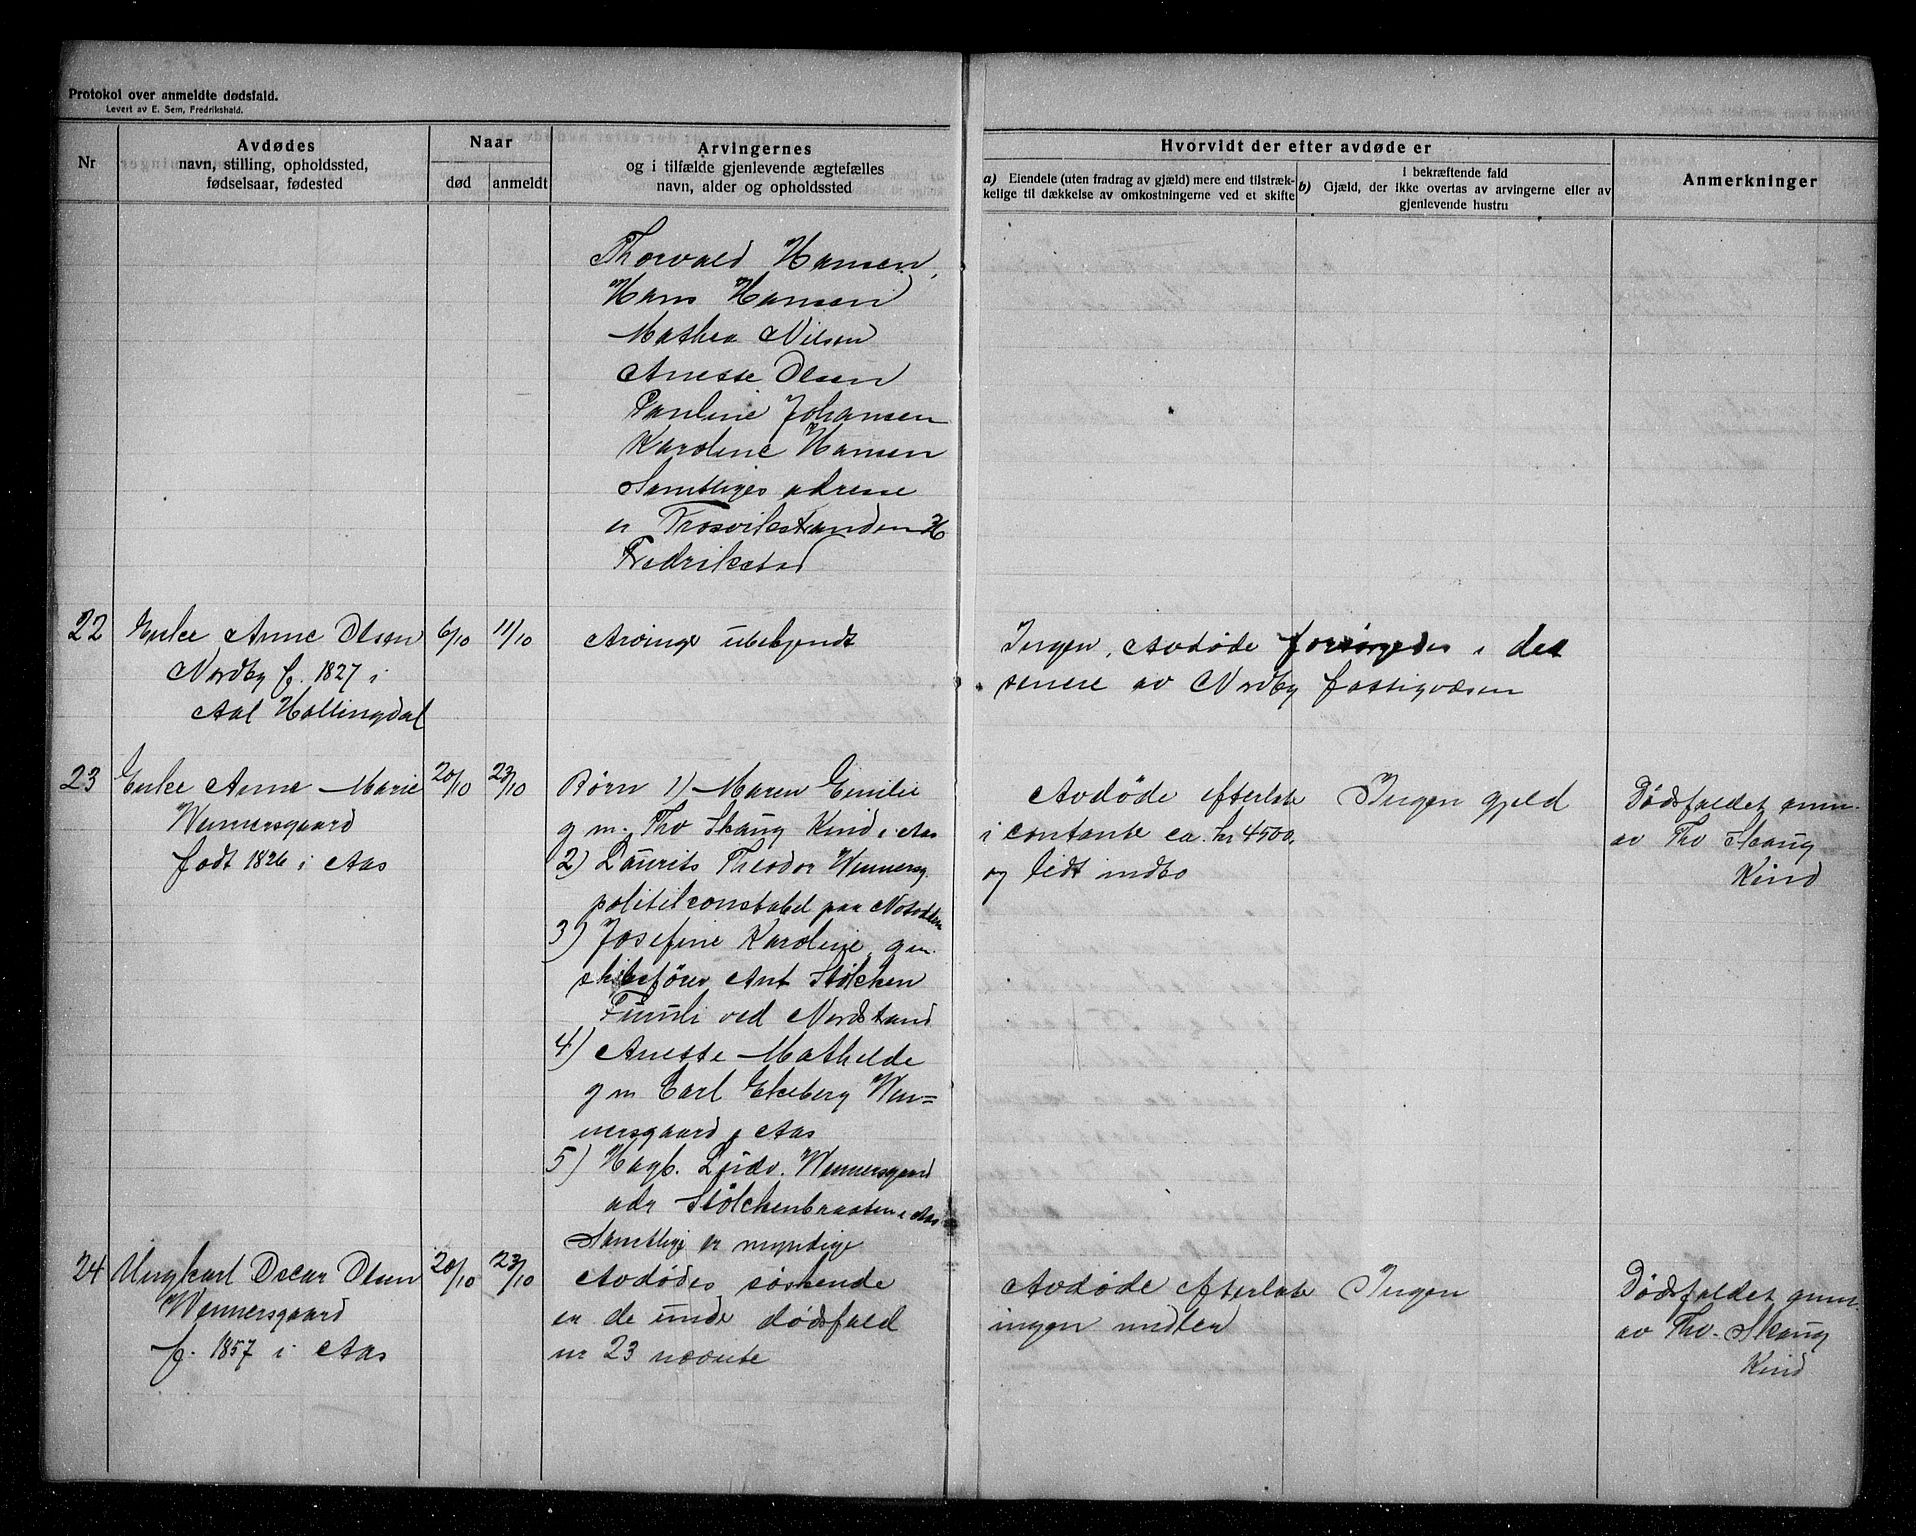 Protokol over anmeldte dødsfald.
Levert av E. Sem, Fredrikshald.
Nr
Avdødes
navn, stilling, opholdssted,
fødselsaar, fødested
Naar
død
anmeldt
Arvingernes
og i tilfælde gjenlevende ægtefælles
navn, alder og opholdssted
Hvorvidt der efter avdøde er
a) Eiendele (uten fradrag av gjæld) mere end tilstræk-
kelige til dækkelse av omkostningerne ved et skifte
i bekræftende fald
b) Gjæld, der ikke overtas av arvingerne eller av
gjenlevende hustru
Anmerkninger
Thorvald Hansen,
Hans Hansen
Mathea Nilsen
Anesse Olsen
Pauline Johansen
Karoline Hansen
Samtliges adresse
er Trosvikstranden
Fredrikstad
22
Enke Anne Olsen
Nordby f. 1827 i
Aal Hallingdal
6/10
11/10
Arvinge ubekjendt
Ingen, Avdøde forsørgedes i det
senere av Nordby fattigvæsen
23
Enke Anne Marie
Wennersgaard
født 1826 i Aas
20/10
23/10
Børn 1) Maren Emilie
g m. Thv Skaug Kind i Aas
2) Laurits Theodor Wennersg.
politikonstabel paa Notodden
3) Josefine Karoline, gm.
skibsfører Ant Stølchen
Furuli ved Nordstrand
4) Anesse Mathilde
g m Carl Ekeberg Wen=
nersgaard i Aas
5) Hagb. Ludv. Wennersgaard
adr Stølchenbraaten i Aas
Samtlige er myndige
Avdøde efterlot
i contante ca. kr 4500,
og lidt indbo
Ingen gjeld
Dødsfaldet anm.
av Thv Skaug
Kind
24
Ungkarl Oscar Olsen
Wennersgaard
f. 1857 i Aas
20/10
23/10
Avdødes søskende
er de unde dødsfald
nr 23 nævnte
Avdøde efterlot
ingen midler
Ingen
Dødsfaldet anm.
av Thv. Skaug
Kind